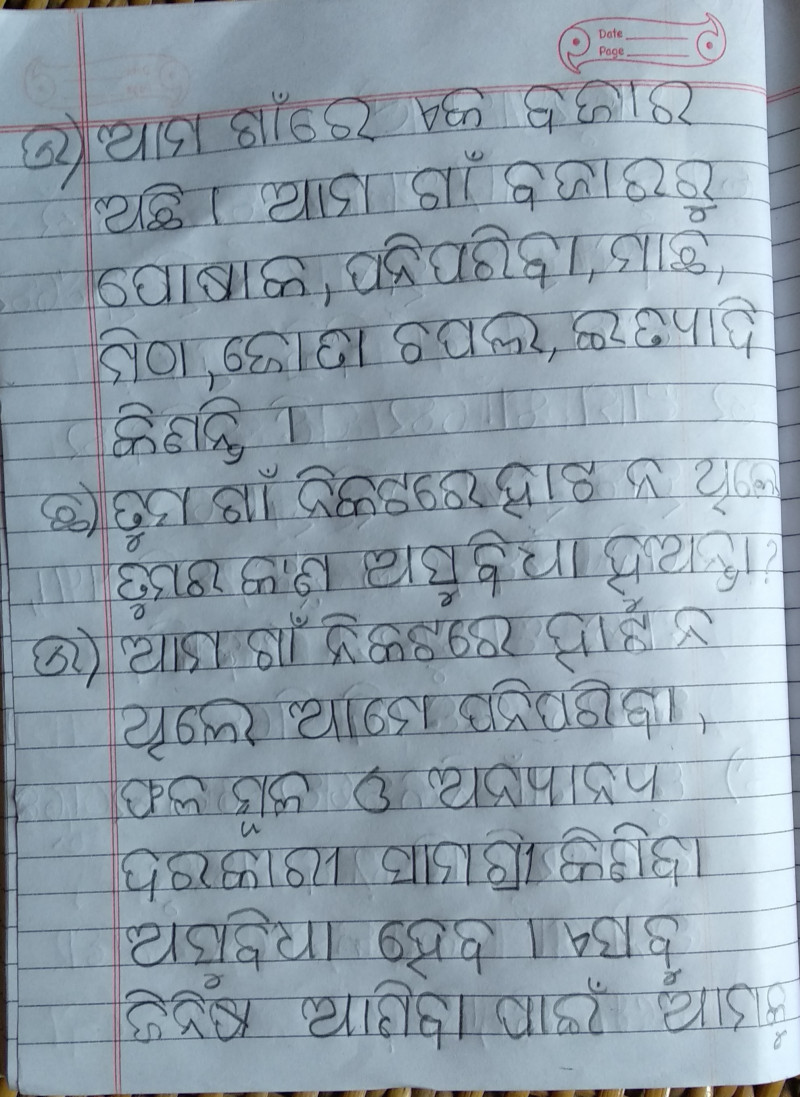 Date
Page
ଉ) ଆମ ଗାଁରେ ଏକ ବଜାର
ଅଛି । ଆମ ଗାଁ ବଜାରରୁ
ପୋଷାକ, ପନିପରିବା, ମାଛ,
ମିଠା, ଜୋତା ଚପଲ, ଇତ୍ୟାଦି
କିଣନ୍ତି ।
ଛ) ତୁମ ଗାଁ ନିକଟରେ ହାଟ ନ ଥିଲେ
ତୁମର କ'ଣ ଅସୁବିଧା ହୁଅନ୍ତା ?
ଉ) ଆମ ଗାଁ ନିକଟରେ ହାଟ ନ
ଥିଲେ ଆମେ ପନିପରିବା,
ଫଳ ମୂଳ ଓ ଅନ୍ୟାନ୍ୟ
ଦରକାରୀ ସାମଗ୍ରୀ କିଣିବା
ଅସୁବିଧା ହେବ । ଏସବୁ
ଜିନିଷ ଆଣିବା ପାଇଁ ଆମକୁ